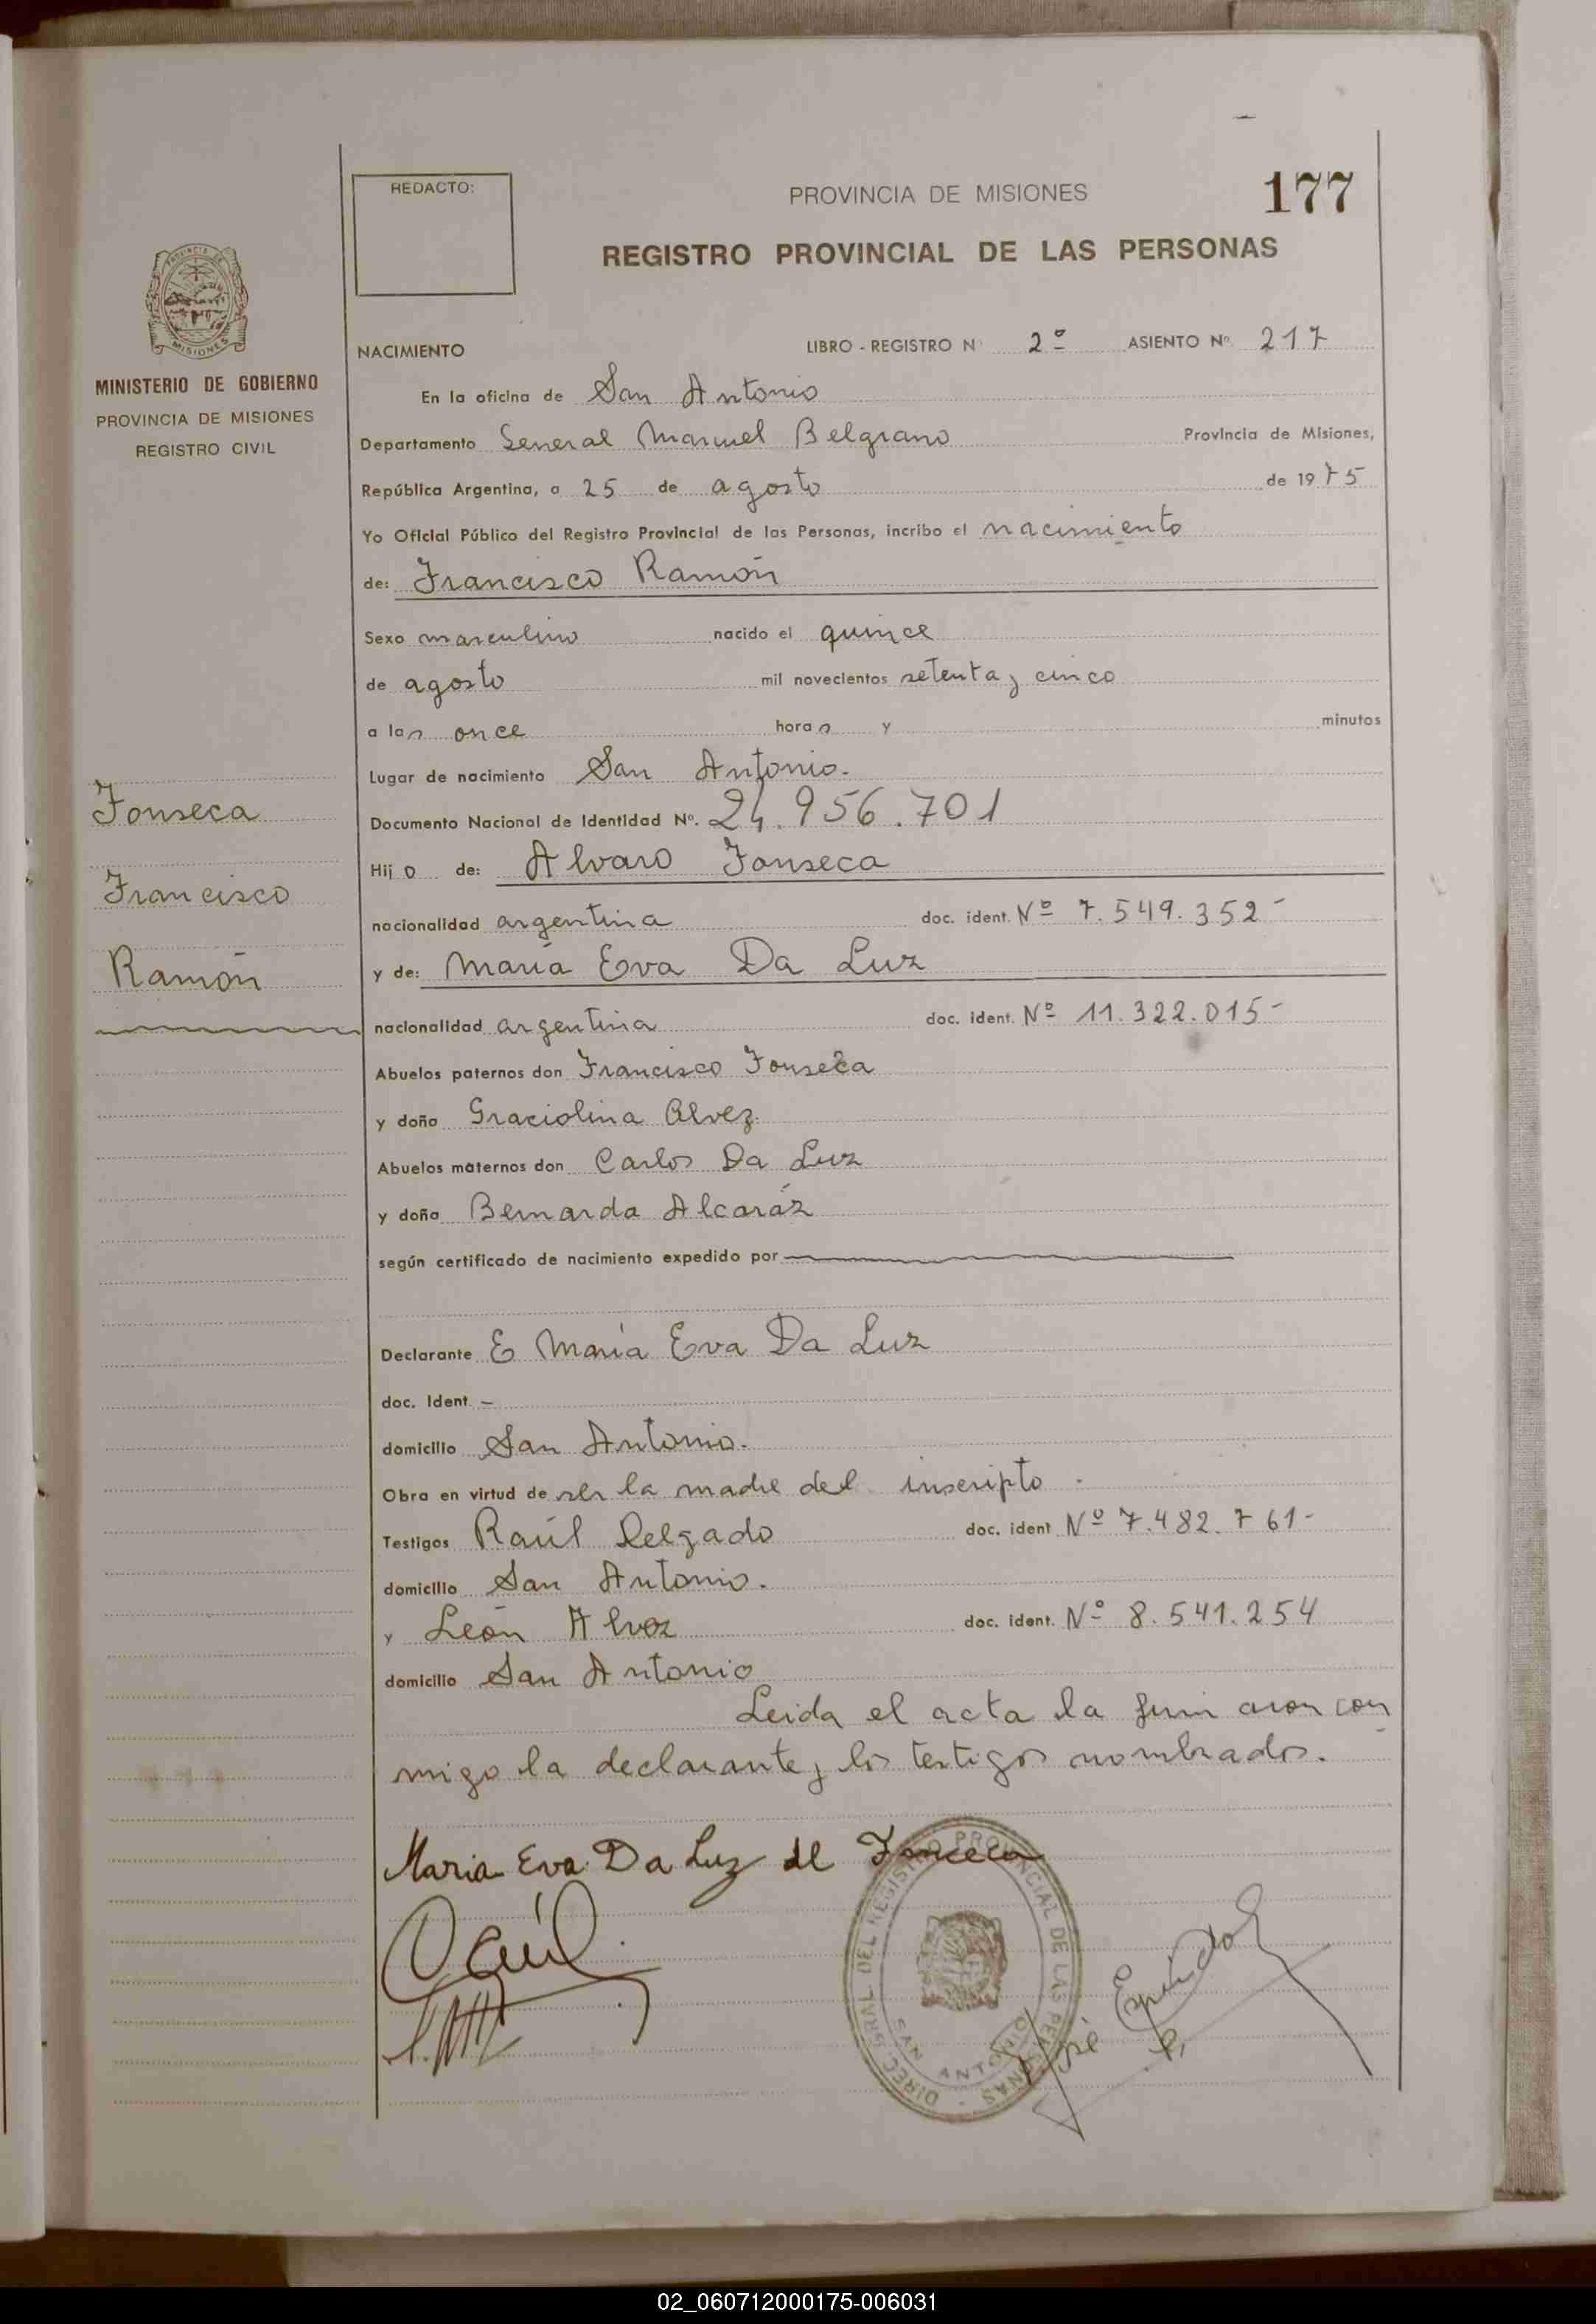 REDACTO:
PROVINCIA DE MISIONES
177
REGISTRO PROVINCIAL DE LAS PERSONAS
PROVINCIA DE
MISIONES
MINISTERIO DE GOBIERNO
PROVINCIA DE MISIONES
REGISTRO CIVIL
Fonseca
Francisco
Ramón
NACIMIENTO LIBRO - REGISTRO Nº 2º ASIENTO Nº 217
En la oficina de San Antonio
Departamento General Manuel Belgrano Provincia de Misiones,
República Argentina, a 25 de agosto de 1975
Yo Oficial Público del Registro Provincial de las Personas, incribo el nacimiento
de: Francisco Ramón
Sexo masculino nacido el quince
de agosto mil novecientos setenta y cinco
a las once horas y minutos
Lugar de nacimiento San Antonio.
Documento Nacional de Identidad Nº. 24.956.701
Hijo de: Alvaro Fonseca
nacionalidad argentina doc. ident. Nº 7.549.352-
y de: María Eva Da Luz
nacionalidad argentina doc. ident. Nº 11.322.015-
Abuelos paternos don Francisco Fonseca
y doña Graciolina Alvez.
Abuelos maternos don Carlos Da Luz
y doña Bernarda Alcaráz
según certificado de nacimiento expedido por
Declarante E María Eva Da Luz
doc. Ident -
domicilio San Antonio.
Obra en virtud de ser la madre del inscripto.
Testigos Raúl Delgado doc. ident Nº 7.482.761-
domicilio San Antonio.
y León Alvez doc. ident. Nº 8.541.254
domicilio San Antonio
Leida el acta la firmaron con
migo la declarante y los testigos nombrados.
Maria Eva Da Luz de Fonceca
Raúl
DIREC. GRAL. DEL REGISTRO PROVINCIAL DE LAS PERSONAS
SAN ANTONIO
José E. Espíndola
02_060712000175-006031